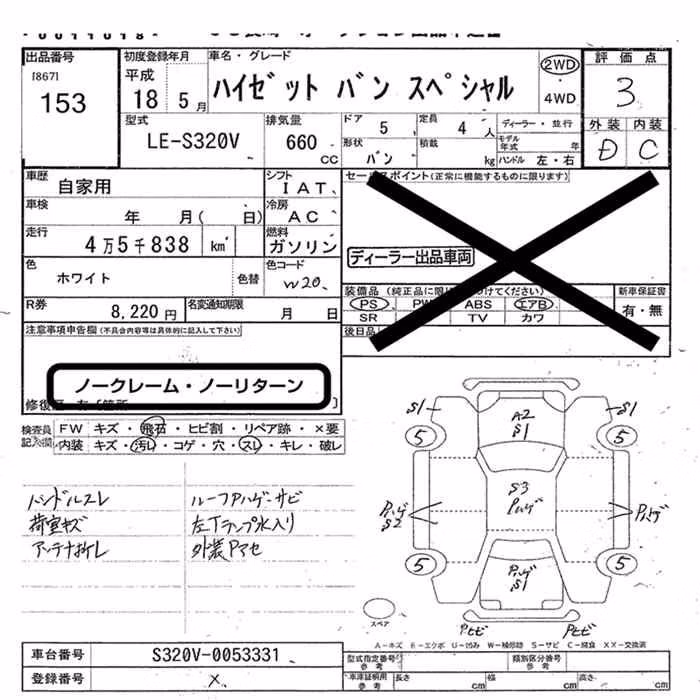 出品番号
[867]
153
初度登録年月
平成
18 5月
車名・グレード
ハイゼット バン スペシャル
2WD
・
4WD
評価点
3
外装 内装
D C
型式
LE-S320V
排気量
660
CC
ドア 5
定員 4人
ディーラー・並行
モデル年式 年
形状 バン
積載 kg
ハンドル 左・右
車歴
自家用
シフト
IAT
車検
年 月( 日)
冷房
AC
走行
4万5千838 km
燃料
ガソリン
色
ホワイト
色替
色コード
W20
R券
8,220円
名変通知期限
月 日
セールスポイント(正常に機能するものに限ります)
ディーラー出品車両
装備品
PS PW ABS エアB
SR TV カワ
新車保証書
有・無
後日品
注意事項申告欄(不具合内容等は具体的に記入して下さい)
ノークレーム・ノーリターン
検査員
記入欄
FW キズ・飛石・ヒビ割・リペア跡・×要
内装 キズ・汚レ・コゲ・穴・スレ・キレ・破レ
ハンドルスレ
荷室キズ
アンテナ折レ
ルーフPハゲサビ
左Tランプ水入り
外装Pアセ
S1
A2
S1
S1
5
5
S3
Pハゲ
Pハゲ
S2
Pハゲ
5
5
Pハゲ
S1
スペア
Pヒビ
Pヒビ
A-キズ E-エクボ U-凹み W-補修跡 S-サビ C-腐食 XX-交換済
車台番号
S320V-0053331
登録番号
×
型式指定番号
参考
類別区分番号
参考
車庫証明用
参考
長さ cm
幅 cm
高さ cm